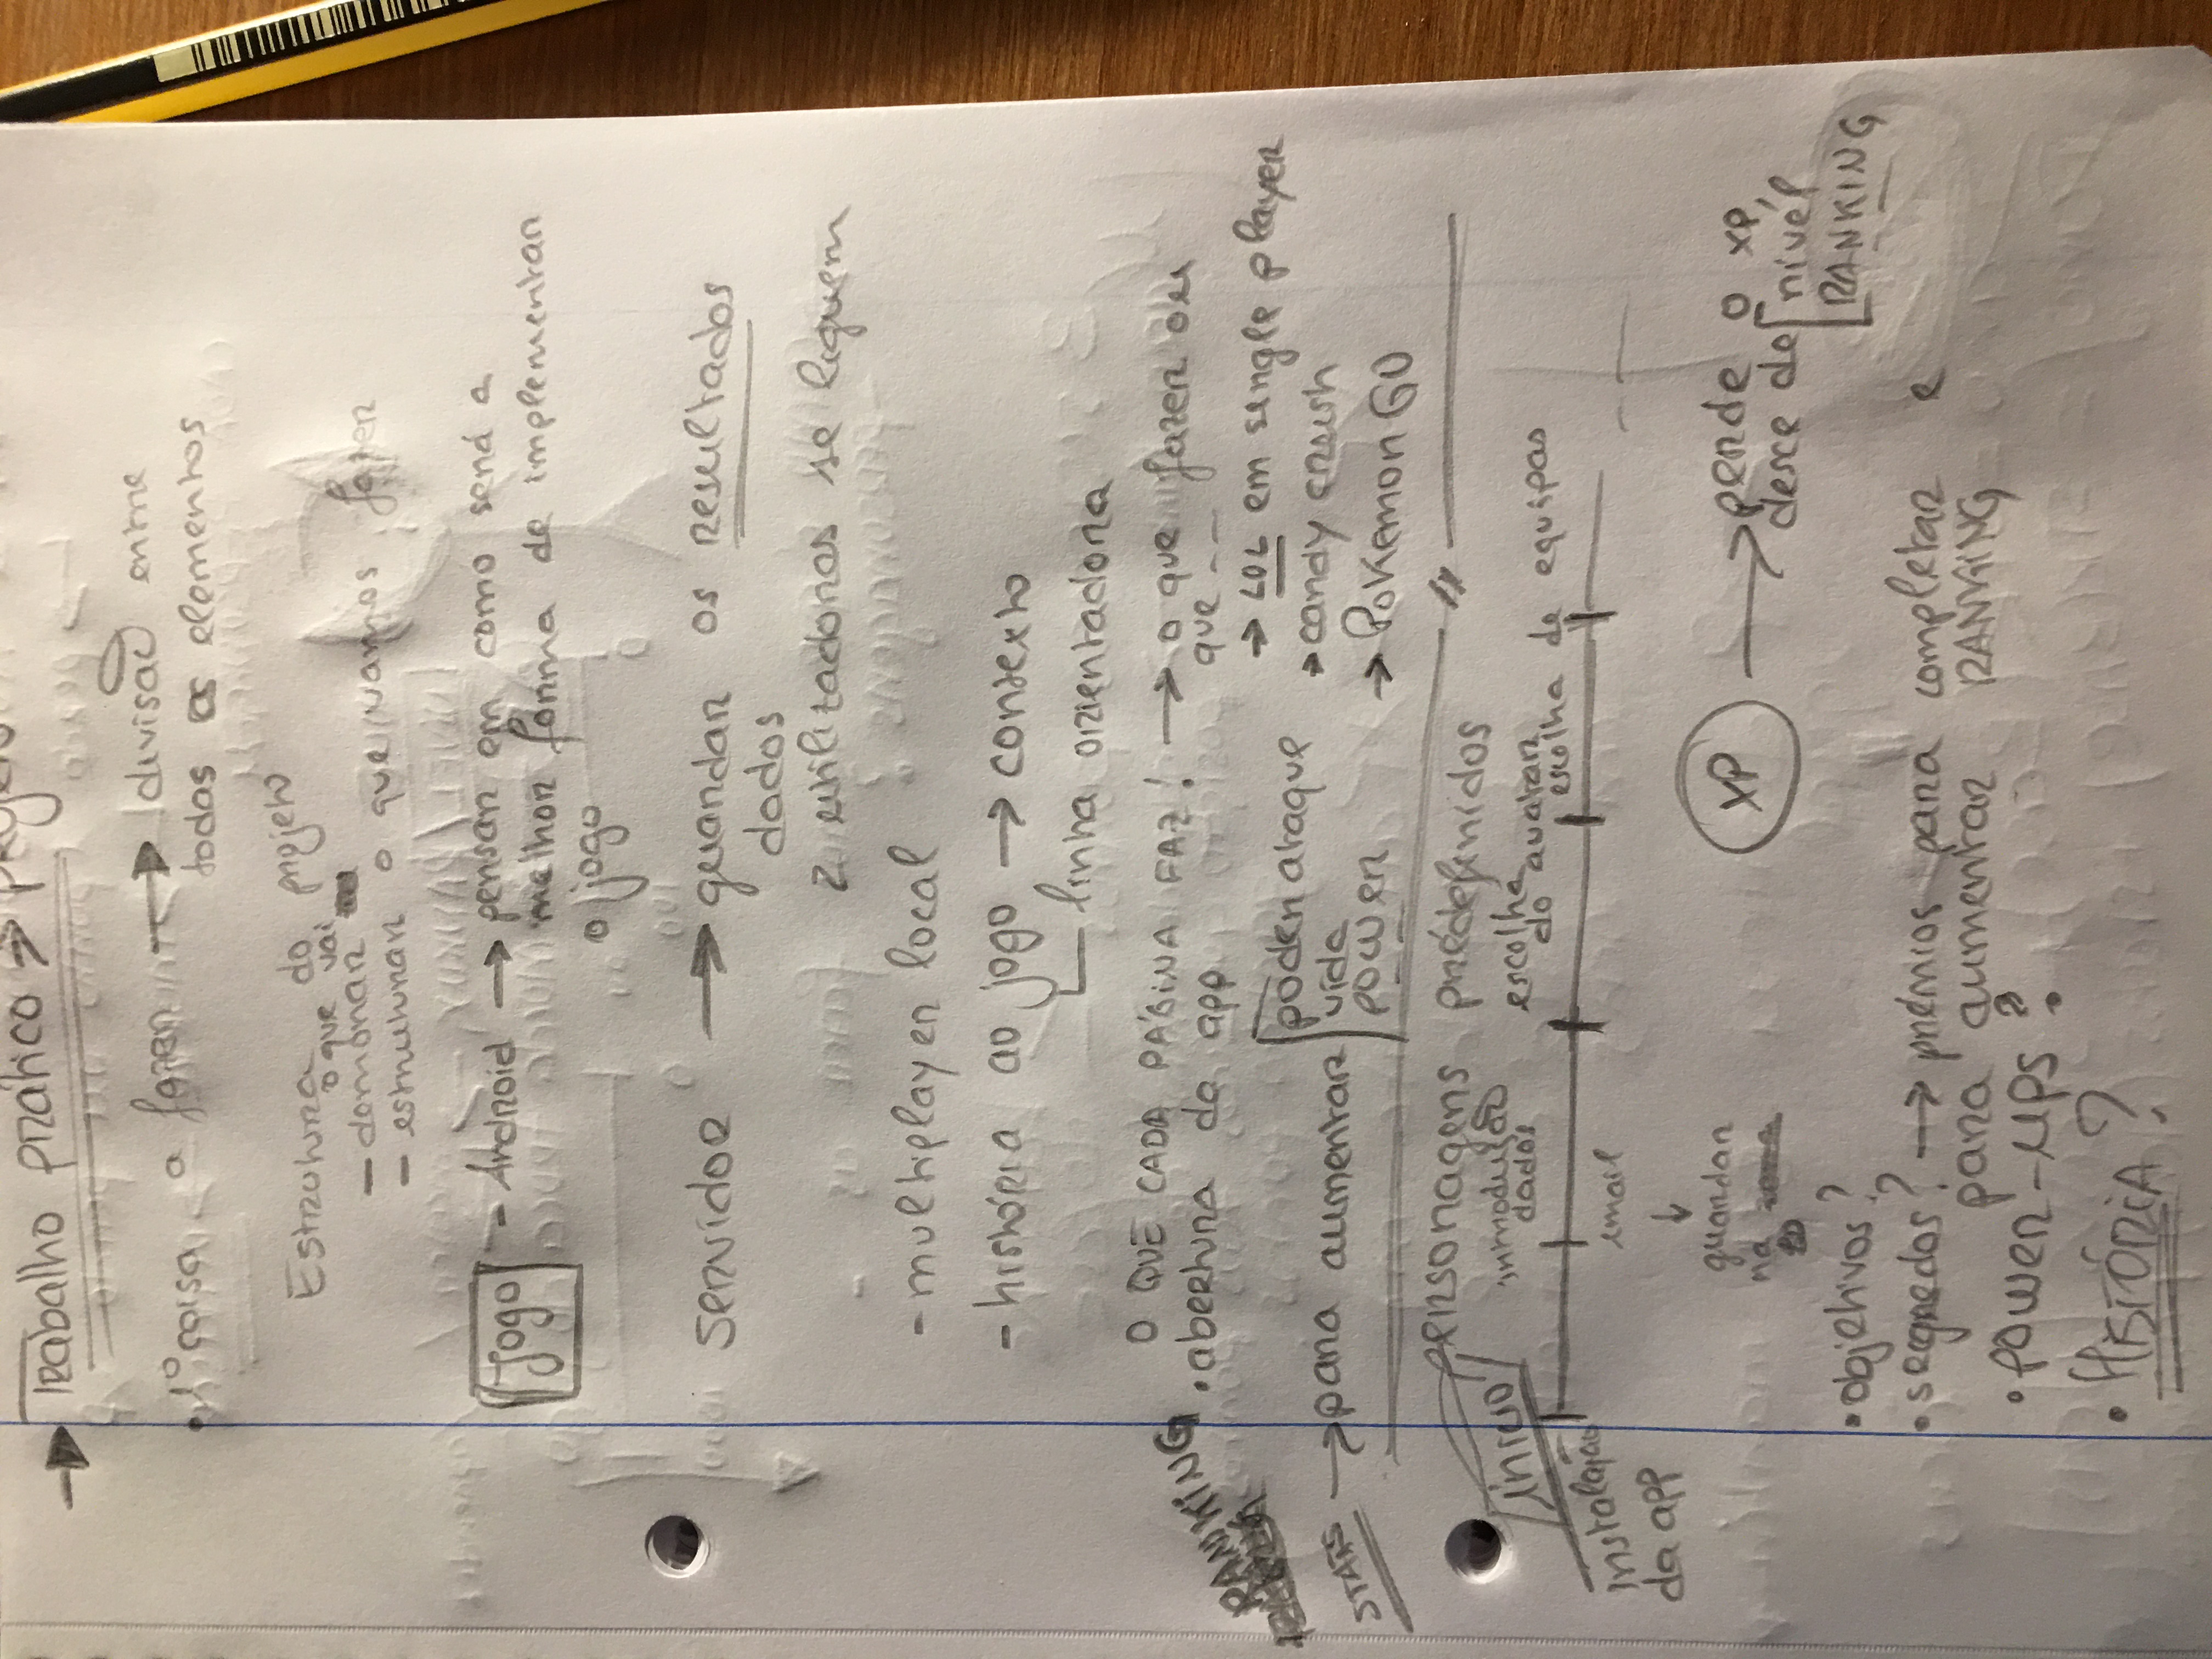 → Trabalho prático → projeto
• 1º coisa a fazer → divisão entre
todos os elementos
Estrutura do projeto
o que vai
- demorar
- estruturar o que vamos fazer
Jogo - Android → pensar em como será a
melhor forma de implementar
o jogo
servidor → guardar os resultados
dados
2 utilizadores se liguem
- multiplayer local
- história ao jogo → contexto
linha orientadora
O QUE CADA PÁGINA FAZ! → o que fazer ou
que --
• abertura da app
→ LOL em single player
→ candy crush
→ Pokemon GO
RANKING
STATS → para aumentar
poder ataque
vida
power
personagens prédefinidos
início
introdução
dados
escolha
do avatar
escolha de equipas
instalação
da app
email
↓
guardar
na
BD
XP → perde o xp,
desce de nível
RANKING
• objetivos?
• segredos? → prémios para completar e
para aumentar RANKING
• power-ups?
• HISTÓRIA?